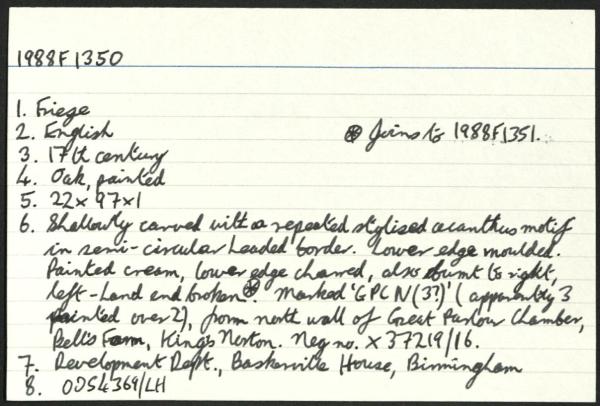 1988F1350
1. Frieze
2. English ⊛ Joins to 1988F1351.
3. 17th century
4. Oak, painted
5. 22 x 97 x 1
6. Shallowly carved with a repeated stylised acanthus motif
in semi-circular beaded border. Lower edge moulded.
Painted cream, lower edge charred, also burnt to right,
left-hand end broken⊛. Marked 'GPC N(3?)' (apparently 3
painted over 2), from north wall of Great Parlour Chamber,
Bell's Farm, King's Norton. Neg no. X37219/16.
7. Development Dept., Baskerville House, Birmingham
8. ODS4369/LH